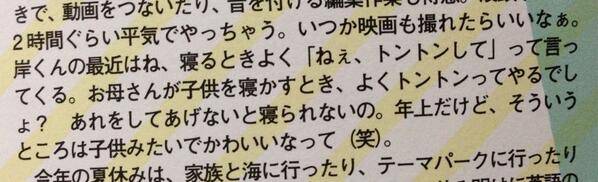 きで、動画をつないだり、音を付ける編集作業も得意。
2時間ぐらい平気でやっちゃう。いつか映画も撮れたらいいなぁ。
岸くんの最近はね、寝るときよく「ねぇ、トントンして」って言っ
てくる。お母さんが子供を寝かすとき、よくトントンってやるでし
ょ？　あれをしてあげないと寝られないの。年上だけど、そういう
ところは子供みたいでかわいいなって（笑）。
今年の夏休みは、家族と海に行ったり、テーマパークに行ったり
英語の